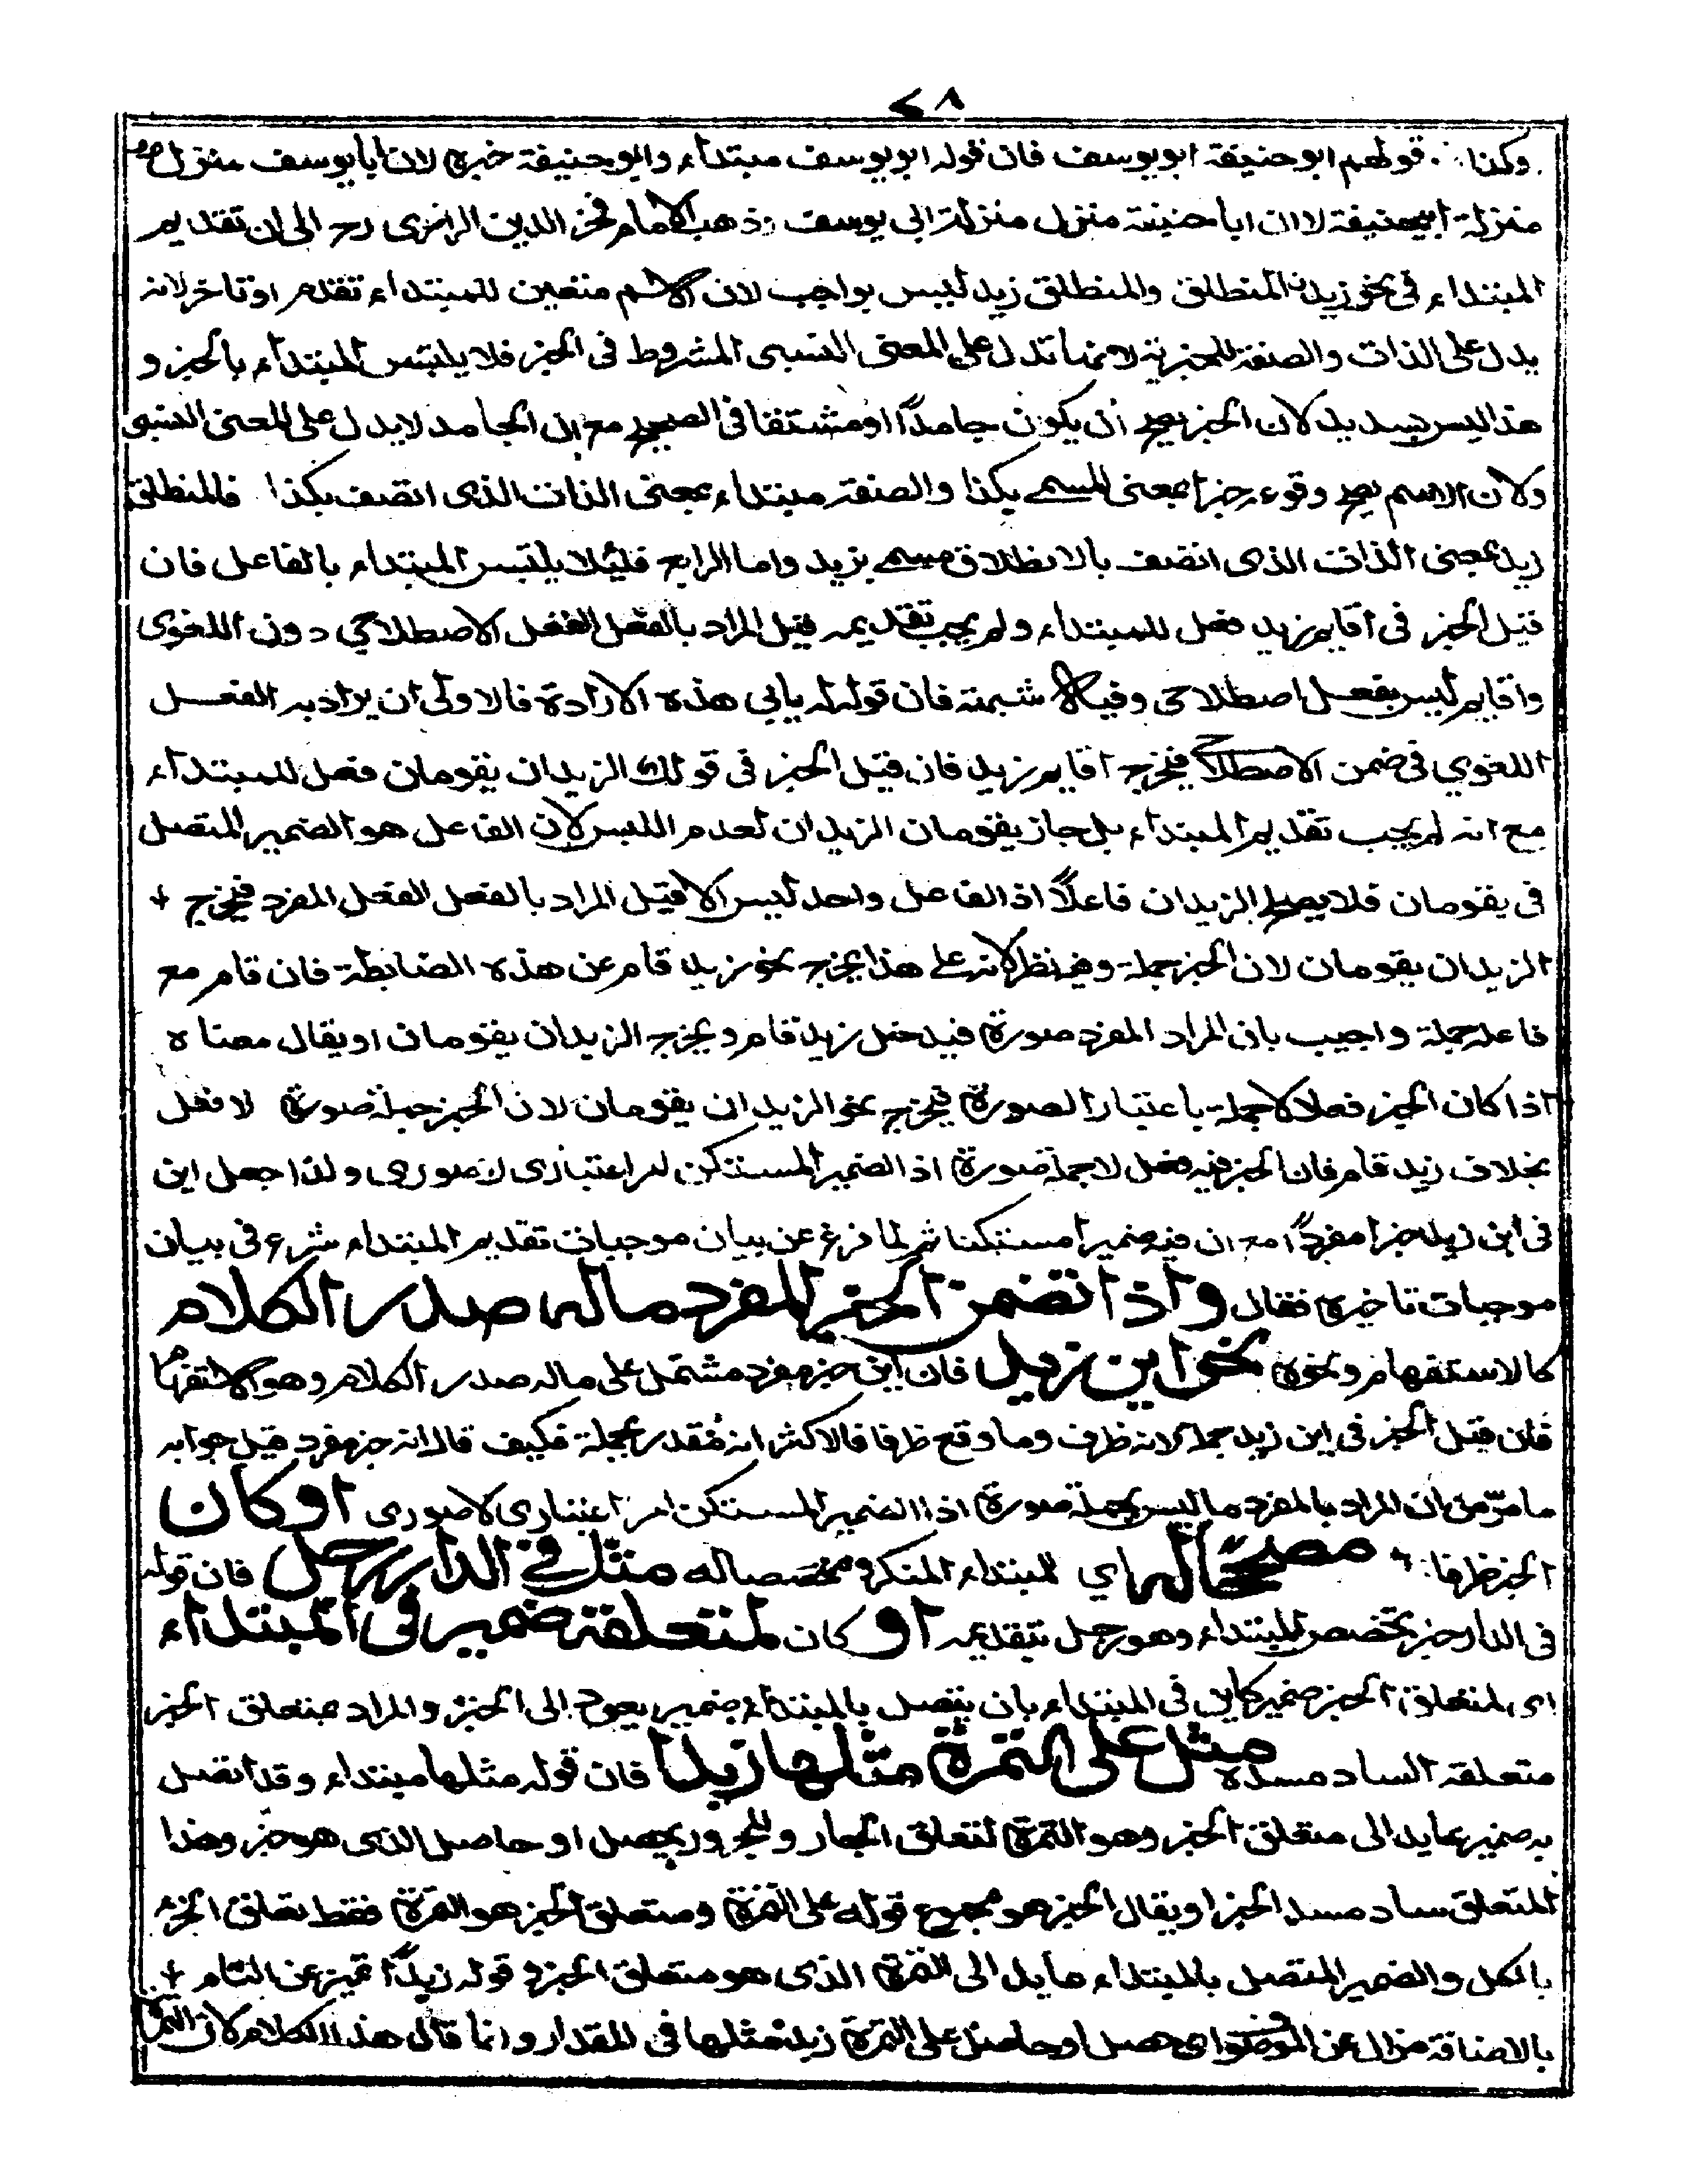 ٧٨
وكذا قولهم ابو حنيفة ابو يوسف فان قوله ابو يوسف مبتداء وابو حنيفة خبره لان ابا يوسف منزل
منزلة ابيحنيفة لا ان ابا حنيفة منزل منزلة ابي يوسف وذهب الامام فخر الدين الرازى رح الى ان تقديم
المبتداء فى نحو زيدن المنطلق والمنطلق زيد ليس بواجب لان الاسم متعين للمبتداء تقدم او تاخر لانه
يدل على الذات والصفة للخبرية لانها تدل على المعنى النسبى المشروط فى الخبر فلا يلتبس المبتداء بالخبر و
هذا ليس بسديد لان الخبر يصح ان يكون جامدًا او مشتقا فى الصحيح مع ان الجامد لا يدل على المعنى النسبى
ولان الاسم يصح وقوعه خبرا بمعنى المسمى بكذا والصفة مبتداء بمعنى الذات الذى اتصف بكذا فالمنطلق
زيد بمعنى الذات الذى اتصف بالانطلاق مسمى بزيد واما الرابع فلئلا يلتبس المبتداء بالفاعل فان
قيل الخبر فى اقايم زيد فعل للمبتداء ولم يجب تقديمه قيل المراد بالفعل الفعل الاصطلاحي دون اللغوى
واقايم ليس بفعل اصطلاحى وفيه شبهة فان قوله له يابي هذه الارادة فالاولى ان يراد به الفعل
اللغوي فى ضمن الاصطلاحى فيخرج اقايم زيد فان قيل الخبر فى قولك الزيدان يقومان فعل للمبتداء
مع انه لم يجب تقديم المبتداء بل جاز يقومان الزيدان لعدم اللبس لان الفاعل هو الضمير المتصل
فى يقومان فلا يصلح الزيدان فاعلًا اذ الفاعل واحد ليس الا قيل المراد بالفعل الفعل المفرد فيخرج
الزيدان يقومان لان الخبر جملة وفيه نظر لانه على هذا يخرج نحو زيد قام عن هذه الضابطة فان قام مع
فاعله جملة واجيب بان المراد المفرد صورة فيدخل زيد قام ويخرج الزيدان يقومان او يقال معناه
اذا كان الخبر فعلا لا جملة باعتبار الصورة فيخرج نحو الزيدان يقومان لان الخبر جملة صورة لا فعل
بخلاف زيد قام فان الخبر فيه فعل لا جملة صورة اذ الضمير المستكن امر اعتبارى لا صورى ولذا جعل اين
فى اين زيد خبرا مفردًا مع ان فيه ضميرا مستكنا ثم لما فرغ عن بيان موجبات تقديم المبتداء شرع فى بيان
موجبات تاخيره فقال واذا تضمن الخبر المفرد ماله صدر الكلام
كالاستفهام ونحوه نحو اين زيد فان اين خبر مفرد مشتمل على ماله صدر الكلام وهو الاستفهام
فان قيل الخبر فى اين زيد جملة لانه ظرف وما وقع ظرفا فالاكثر انه مُقدر بجملة فكيف قال انه خبر مفرد قيل جوابه
ما مرّ من ان المراد بالمفرد ما ليس بجملة صورة اذا الضمير المستكن امر اعتبارى لا صورى او كان
الخبر ظرفا مصححًا له اي للمبتداء المنكر ومخصصا له مثل في الدار رجل فان قوله
فى الدار خبر تخصص المبتداء وهو رجل بتقديمه او كان لمتعلقه ضمير فى المبتداء
اى لمتعلق الخبر ضمير كاين فى المبتداء بان يتصل بالمبتداء ضمير يعود الى الخبر والمراد بمتعلق الخبر
متعلقه الساد مسده مثل على التمرة مثلها زبدا فان قوله مثلها مبتداء وقد اتصل
به ضمير عايد الى متعلق الخبر وهو التمرة لتعلق الجار والمجرور بحصل او حاصل الذى هو خبر وهذا
المتعلق ساد مسد الخبر او يقال الخبر هو مجموع قوله على التمرة ومتعلق الخبر هو التمرة فقط تعلق الجزء
بالكل والضمير المتصل بالمبتداء عايد الى التمرة الذى هو متعلق الخبر و قوله زبدًا تميز عن التام
بالاضافة مزال عن الموضوف اى حصل او حاصل على التمرة زبد مثلها فى المقدار وانما قال هذا الكلام لان التمرة